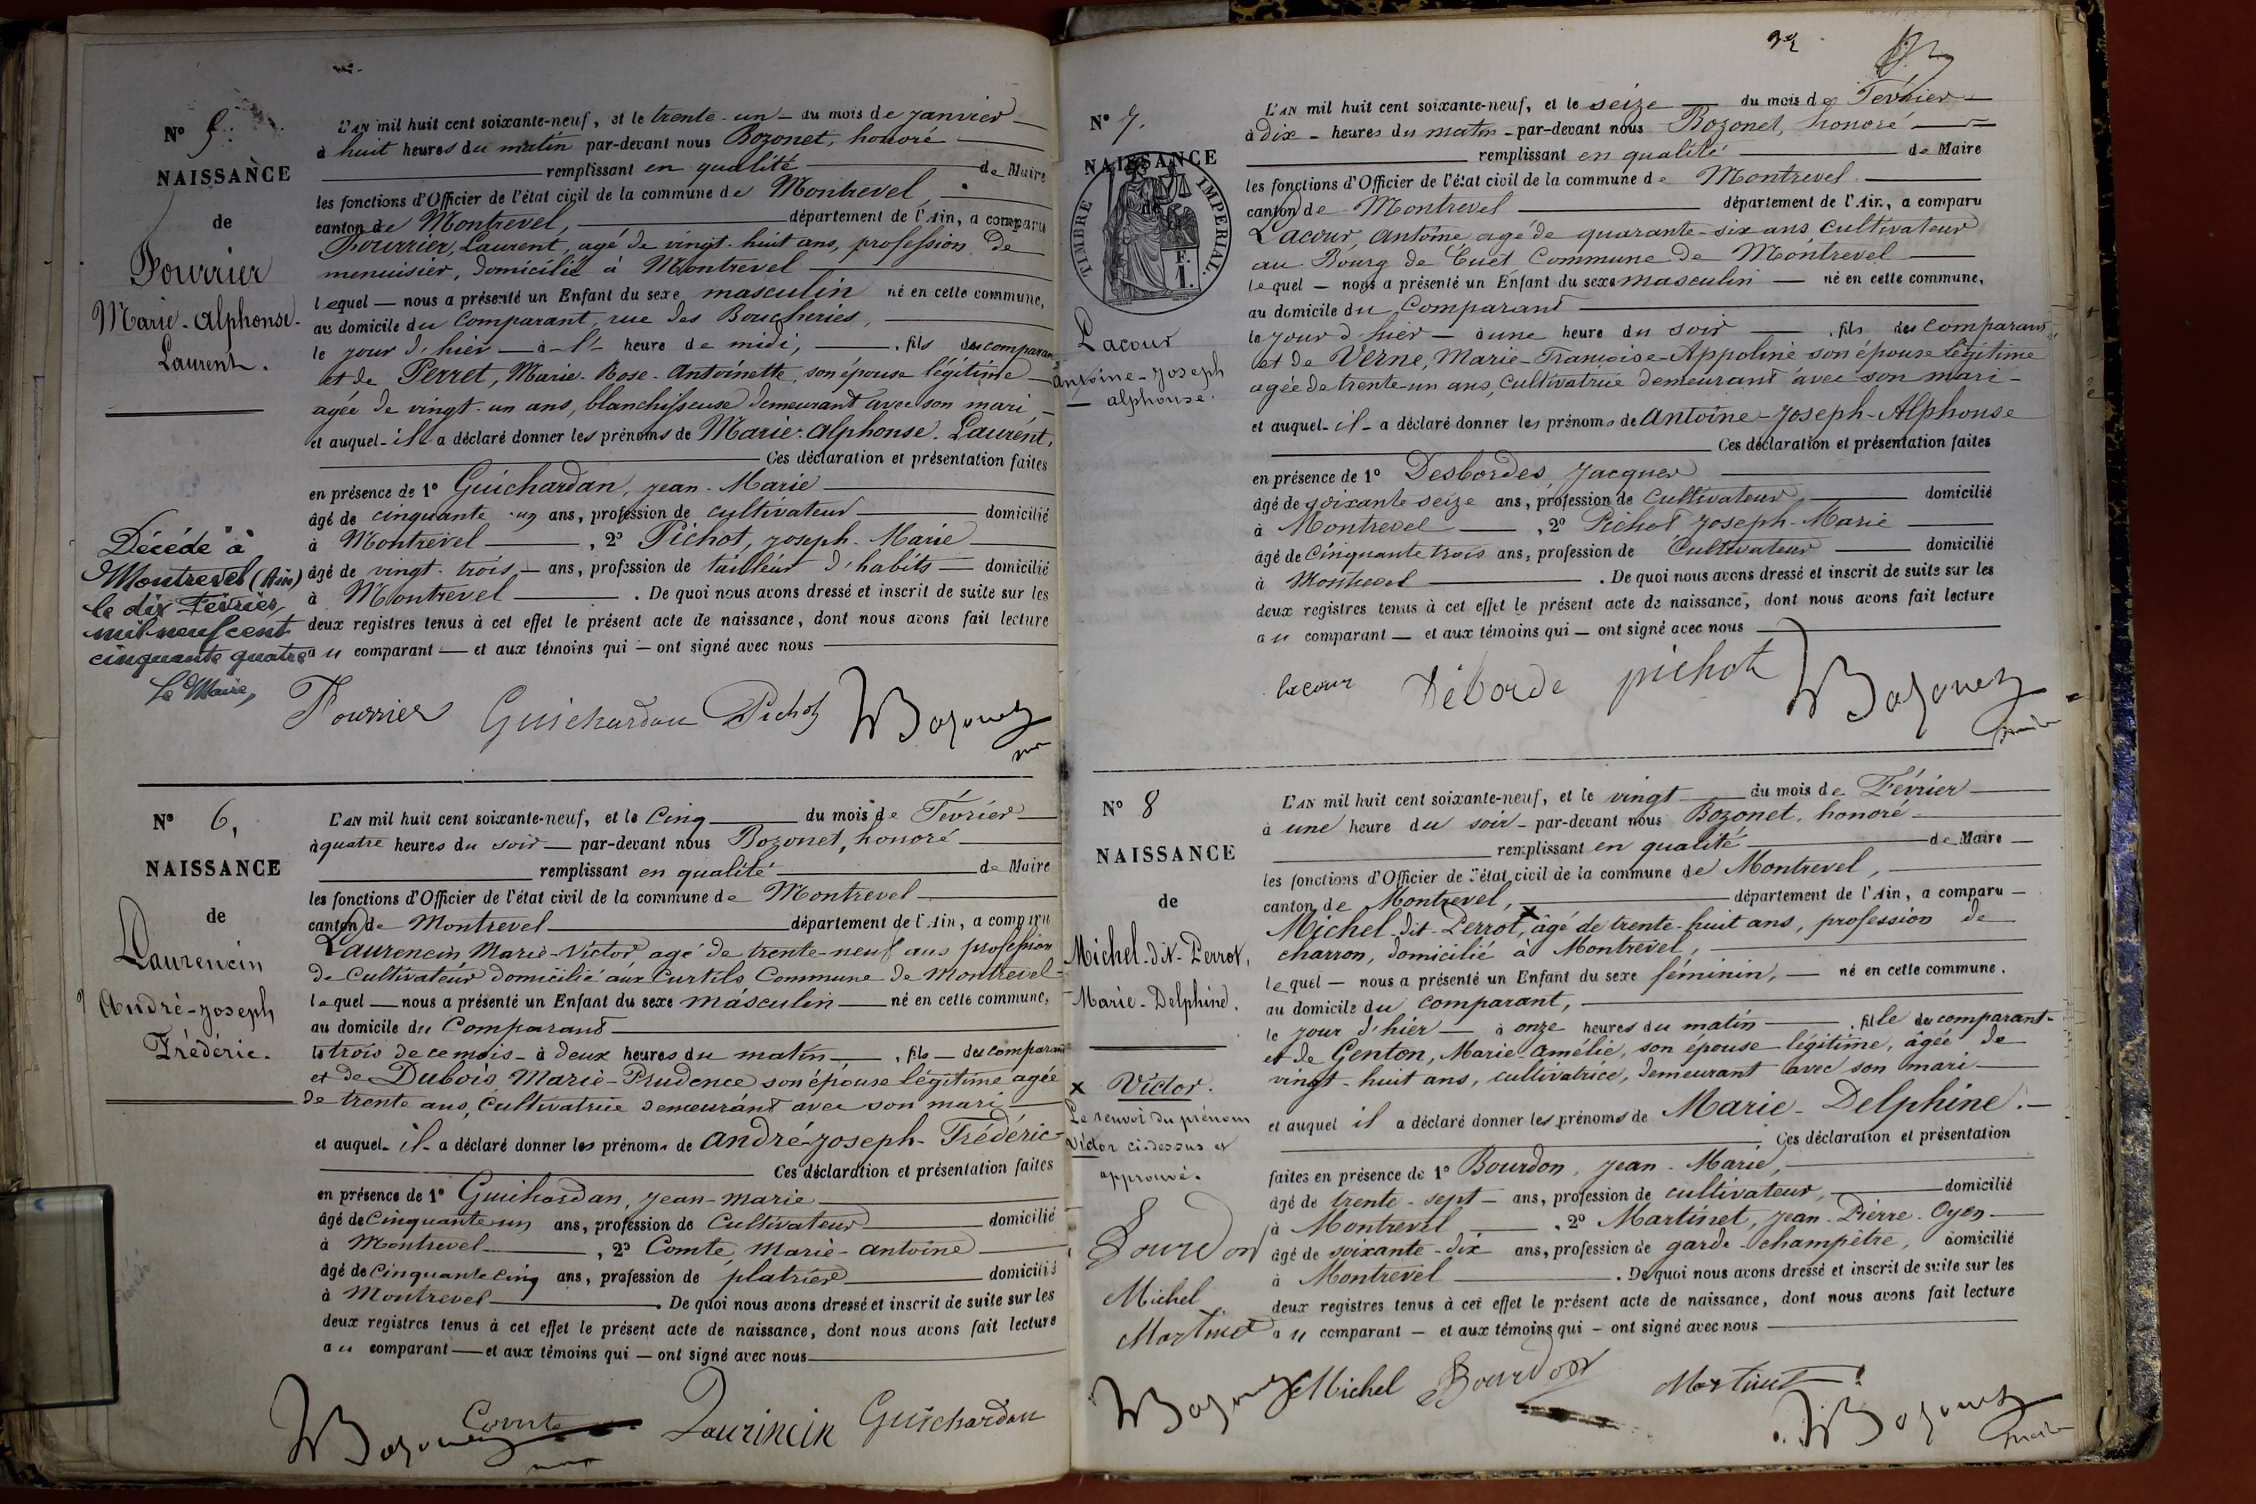 N° 5.
NAISSANCE
de
Fourrier
Marie-Alphonse-
Laurent.
L'AN mil huit cent soixante-neuf, et le trente-un du mois de Janvier
à huit heures du matin par-devant nous Bozonet, honoré
remplissant en qualité de Maire
les fonctions d'Officier de l'état civil de la commune de Montrevel,
canton de Montrevel, département de l'Ain, a comparu
Fourrier, Laurent, agé de vingt-huit ans, profession de
menuisier, domicilié à Montrevel
lequel nous a présenté un Enfant du sexe masculin né en cette commune,
au domicile du comparant, rue des Boucheries,
le jour d'hier à l' heure de midi, , fils du comparant
et de Perret, Marie-Rose-Antoinette, son épouse légitime
agée de vingt-un ans, blanchisseuse demeurant avec son mari,
et auquel il a déclaré donner les prénoms de Marie-Alphonse-Laurent,
Ces déclaration et présentation faites
en présence de 1° Guichardan, Jean-Marie
âgé de cinquante-un ans, profession de cultivateur domicilié
à Montrevel , 2° Pichot, Joseph-Marie
âgé de vingt-trois ans, profession de tailleur d'habits domicilié
à Montrevel . De quoi nous avons dressé et inscrit de suite sur les
deux registres tenus à cet effet le présent acte de naissance, dont nous avons fait lecture
au comparant et aux témoins qui ont signé avec nous
Décédé à
Montrevel (Ain)
le dix Février
mil neuf cent
cinquante quatre
Le Maire,
Fourrier Guichardan Pichot Bozonet
N° 6,
NAISSANCE
de
Laurencin
André-Joseph
Frédéric.
L'AN mil huit cent soixante-neuf, et le Cinq du mois de Février
à quatre heures du soir par-devant nous Bozonet, honoré
remplissant en qualité de Maire
les fonctions d'Officier de l'état civil de la commune de Montrevel
canton de Montrevel département de l'Ain, a comparu
Laurencin, Marie-Victor, agé de trente-neuf ans profession
de Cultivateur domicilié aux Curtils Commune de Montrevel
lequel nous a présenté un Enfant du sexe masculin né en cette commune,
au domicile du Comparant
le trois de ce mois à deux heures du matin , fils du comparant
et de Dubois Marie-Prudence son épouse légitime agée
de trente ans, Cultivatrice demeurant avec son mari
et auquel il a déclaré donner les prénoms de André-Joseph-Frédéric
Ces déclaration et présentation faites
en présence de 1° Guichardan, Jean-Marie
âgé de Cinquante un ans, profession de Cultivateur domicilié
à Montrevel , 2° Comte, Marie-Antoine
âgé de Cinquante cinq ans, profession de platrier domicilié
à Montrevel . De quoi nous avons dressé et inscrit de suite sur les
deux registres tenus à cet effet le présent acte de naissance, dont nous avons fait lecture
au comparant et aux témoins qui ont signé avec nous
Bozonet Comte Laurincin Guichardan
N° 7.
NAISSANCE
de
TIMBRE IMPERIAL.
Lacour
Antoine-Joseph
alphonse.
L'AN mil huit cent soixante-neuf, et le seize du mois de Février
à dix heures du matin par-devant nous Bozonet, honoré
remplissant en qualité de Maire
les fonctions d'Officier de l'état civil de la commune de Montrevel
canton de Montrevel département de l'Ain, a comparu
Lacour, Antoine agé de quarante-six ans Cultivateur
au Bourg de Cuet Commune de Montrevel
lequel nous a présenté un Enfant du sexe masculin né en cette commune,
au domicile du Comparant
le jour d'hier à une heure du soir , fils du Comparant
et de Verne, Marie-Francoise-Appoline son épouse légitime
agée de trente-un ans, Cultivatrice demeurant avec son mari
et auquel il a déclaré donner les prénoms de Antoine-Joseph-Alphonse
Ces déclaration et présentation faites
en présence de 1° Desbordes, Jacques
âgé de soixante seize ans, profession de Cultivateur domicilié
à Montrevel , 2° Pichot Joseph-Marie
âgé de Cinquante trois ans, profession de Cultivateur domicilié
à Montrevel . De quoi nous avons dressé et inscrit de suite sur les
deux registres tenus à cet effet le présent acte de naissance, dont nous avons fait lecture
au comparant et aux témoins qui ont signé avec nous
lacour Déborde pichot Bozonet
N° 8
NAISSANCE
de
Michel-dit-Perrot,
Marie-Delphine.
L'AN mil huit cent soixante-neuf, et le vingt du mois de Février
à une heure du soir par-devant nous Bozonet, honoré
remplissant en qualité de Maire
les fonctions d'Officier de l'état civil de la commune de Montrevel,
canton de Montrevel, département de l'Ain, a comparu
Michel-dit-Perrot, x âgé de trente-huit ans, profession de
charron, domicilié à Montrevel,
lequel nous a présenté un Enfant du sexe féminin, né en cette commune.
au domicile du comparant,
le jour d'hier à onze heures du matin , fille du comparant
et de Genton, Marie-Amélie, son épouse légitime, âgée de
vingt-huit ans, cultivatrice, demeurant avec son mari
et auquel il a déclaré donner les prénoms de Marie-Delphine.
Ces déclaration et présentation
faites en présence de 1° Bourdon, Jean-Marie,
âgé de trente-sept ans, profession de cultivateur, domicilié
à Montrevel , 2° Martinet, Jean-Pierre-Oyen
âgé de soixante-dix ans, profession de garde-champêtre, domicilié
à Montrevel . De quoi nous avons dressé et inscrit de suite sur les
deux registres tenus à cet effet le présent acte de naissance, dont nous avons fait lecture
au comparant et aux témoins qui ont signé avec nous
x Victor.
Le renvoi du prénom
Victor ci-dessus est
approuvé.
Bourdon
Michel
Martinet
Bozonet Michel Bourdon Martinet Bozonet